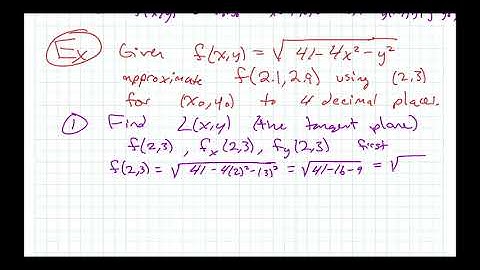 Ex Given f(x,y) = √(41-4x²-y²)
approximate f(2.1, 2.9) using (2,3)
for (x₀,y₀) to 4 decimal places.
① Find L(x,y) (the tangent plane)
f(2,3) , fₓ(2,3), f_y(2,3) first
f(2,3) = √(41-4(2)²-(3)²) = √(41-16-9) = √